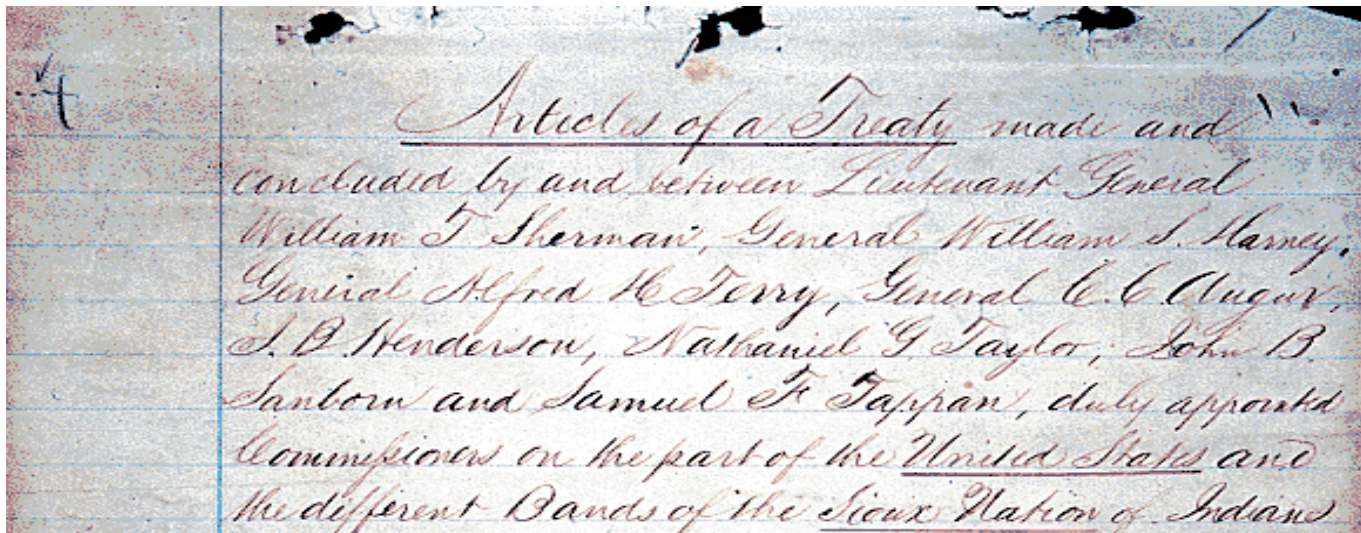 Articles of a Treaty made and
concluded by and between Lieutenant General
William T Sherman, General William S. Harney,
General Alfred H Terry, General C. C. Augur,
J. B. Henderson, Nathaniel G Taylor, John B.
Sanborn and Samuel F Tappan, duly appointed
Commissioners on the part of the United States and
the different Bands of the Sioux Nation of Indians